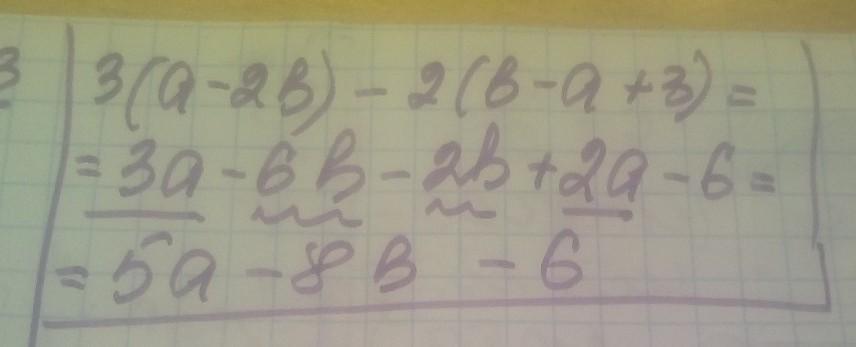 3
3(a-2b) - 2(b-a+3)=
=3a-6b-2b+2a-6=
=5a-8b -6